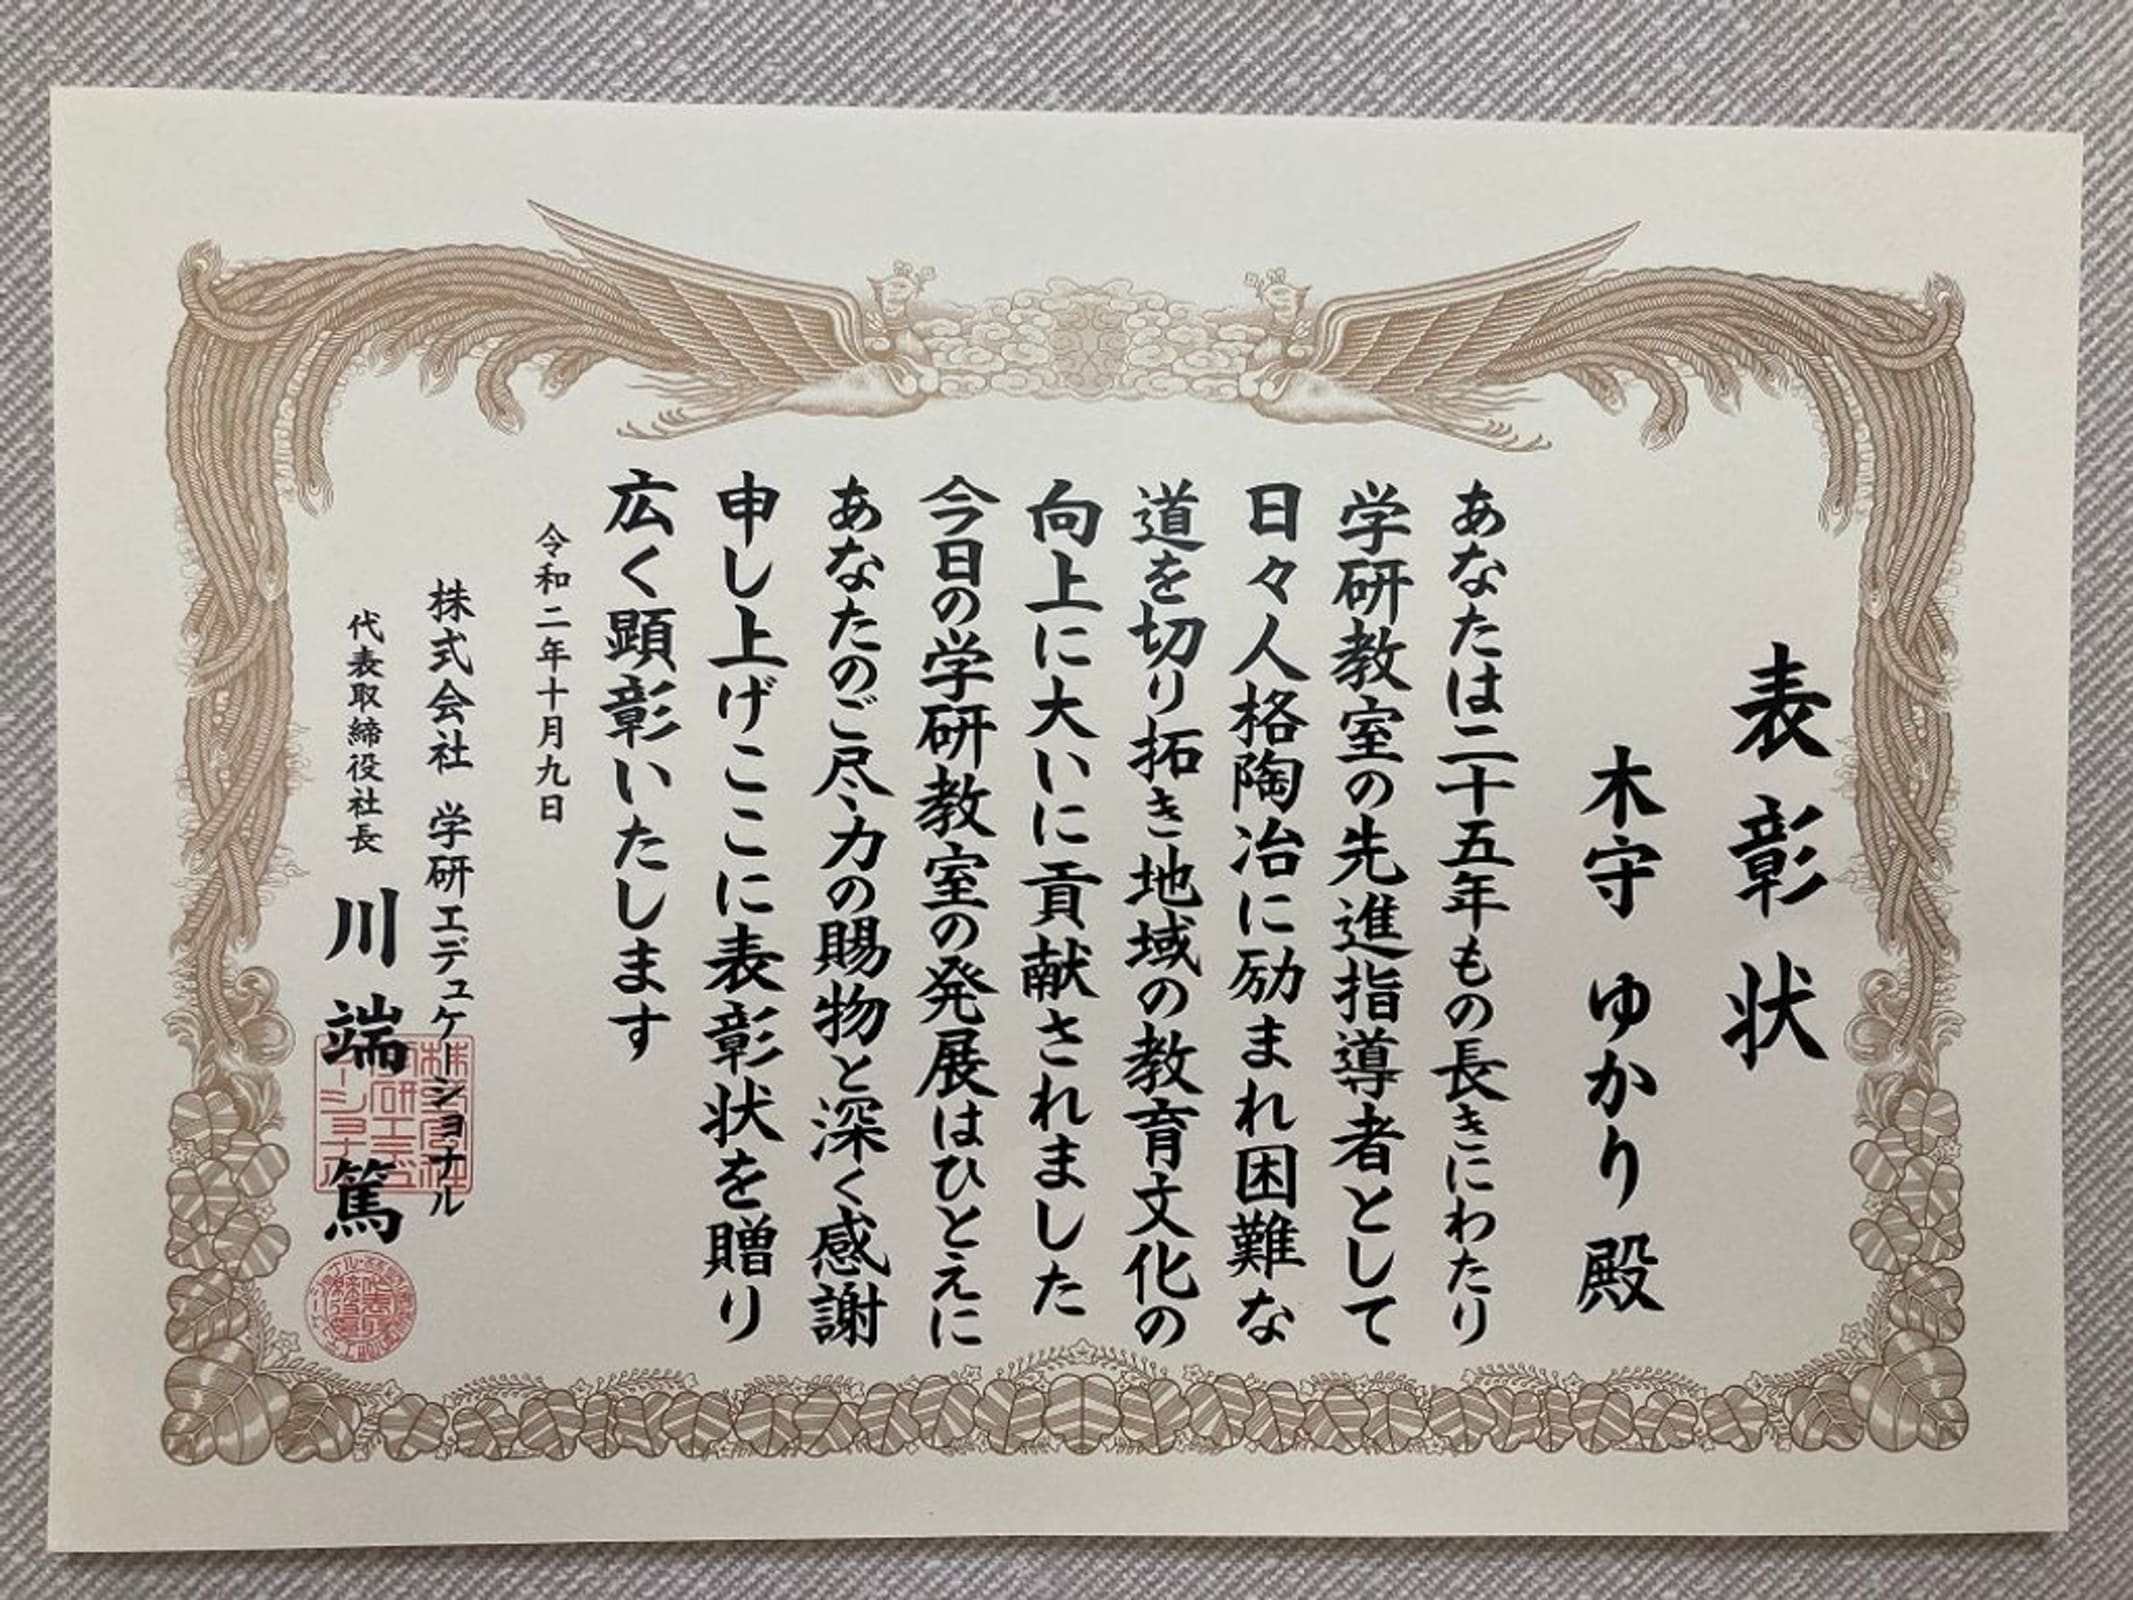 表彰状
木守 ゆかり 殿
あなたは二十五年もの長きにわたり
学研教室の先進指導者として
日々人格陶冶に励まれ困難な
道を切り拓き地域の教育文化の
向上に大いに貢献されました
今日の学研教室の発展はひとえに
あなたのご尽力の賜物と深く感謝
申し上げここに表彰状を贈り
広く顕彰いたします
令和二年十月九日
株式会社 学研エデュケーショナル
代表取締役社長 川端 篤